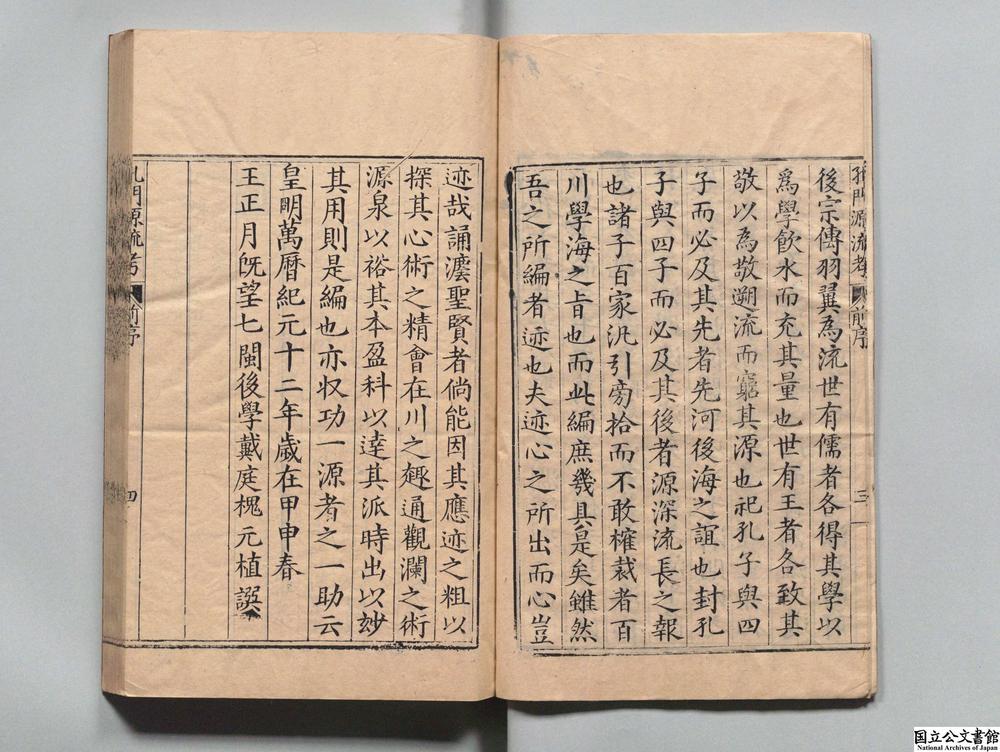 孔門源流考 前序 三
後宗傳羽翼為流世有儒者各得其學以
為學飲水而充其量也世有王者各致其
敬以為敬遡流而窮其源也祀孔子與四
子而必及其先者先河後海之誼也封孔
子與四子而必及其後者源深流長之報
也諸子百家汎引旁拾而不敢榷裁者百
川學海之旨也而此編庶幾具是矣雖然
吾之所編者迹也夫迹心之所出而心豈
迹哉誦灋聖賢者倘能因其應迹之粗以
探其心術之精會在川之趣通觀瀾之術
源泉以裕其本盈科以達其派時出以玅
其用則是編也亦収功一源者之一助云
皇明萬曆紀元十二年歲在甲申春
王正月旣望七閩後學戴庭槐元植譔
孔門源流考 前序 四
国立公文書館
National Archives of Japan